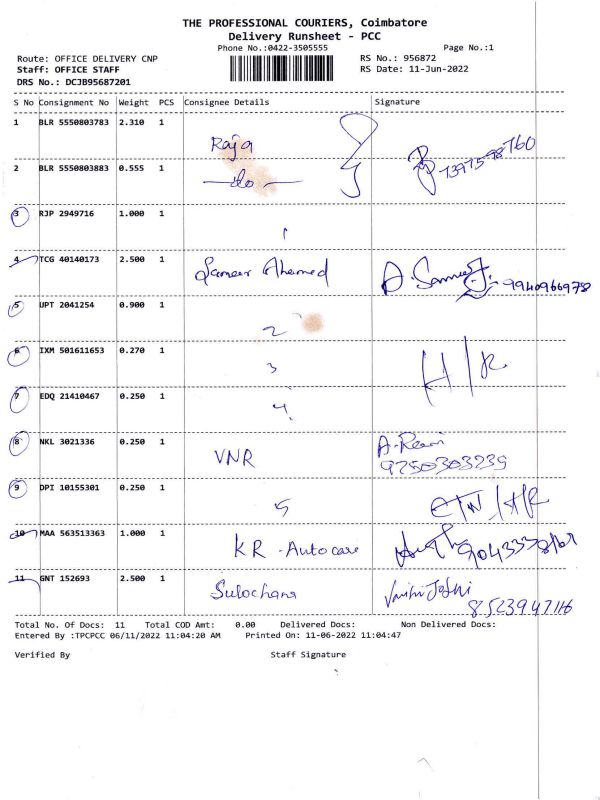 THE PROFESSIONAL COURIERS, Coimbatore
Delivery Runsheet - PCC
Phone No.:0422-3505555 Page No.:1
Route: OFFICE DELIVERY CNP RS No.: 956872
Staff: OFFICE STAFF RS Date: 11-Jun-2022
DRS No.: DCJB95687201
S No Consignment No Weight PCS Consignee Details Signature
1 BLR 5550803783 2.310 1 Raja 7397598760
2 BLR 5550803883 0.555 1 - do -
3 RJP 2949716 1.000 1 1
4 TCG 40140173 2.500 1 Sameer Ahamed A. Sameer 9940966978
5 UPT 2041254 0.900 1 2
6 IXM 501611653 0.270 1 3 H/R
7 EDQ 21410467 0.250 1 4
8 NKL 3021336 0.250 1 VNR
9750303239
9 DPI 10155301 0.250 1 5
10 MAA 563513363 1.000 1 KR - Autocare
11 GNT 152693 2.500 1 Sulochana
Total No. Of Docs: 11 Total COD Amt: 0.00 Delivered Docs: Non Delivered Docs:
Entered By :TPCPCC 06/11/2022 11:04:20 AM Printed On: 11-06-2022 11:04:47
Verified By Staff Signature